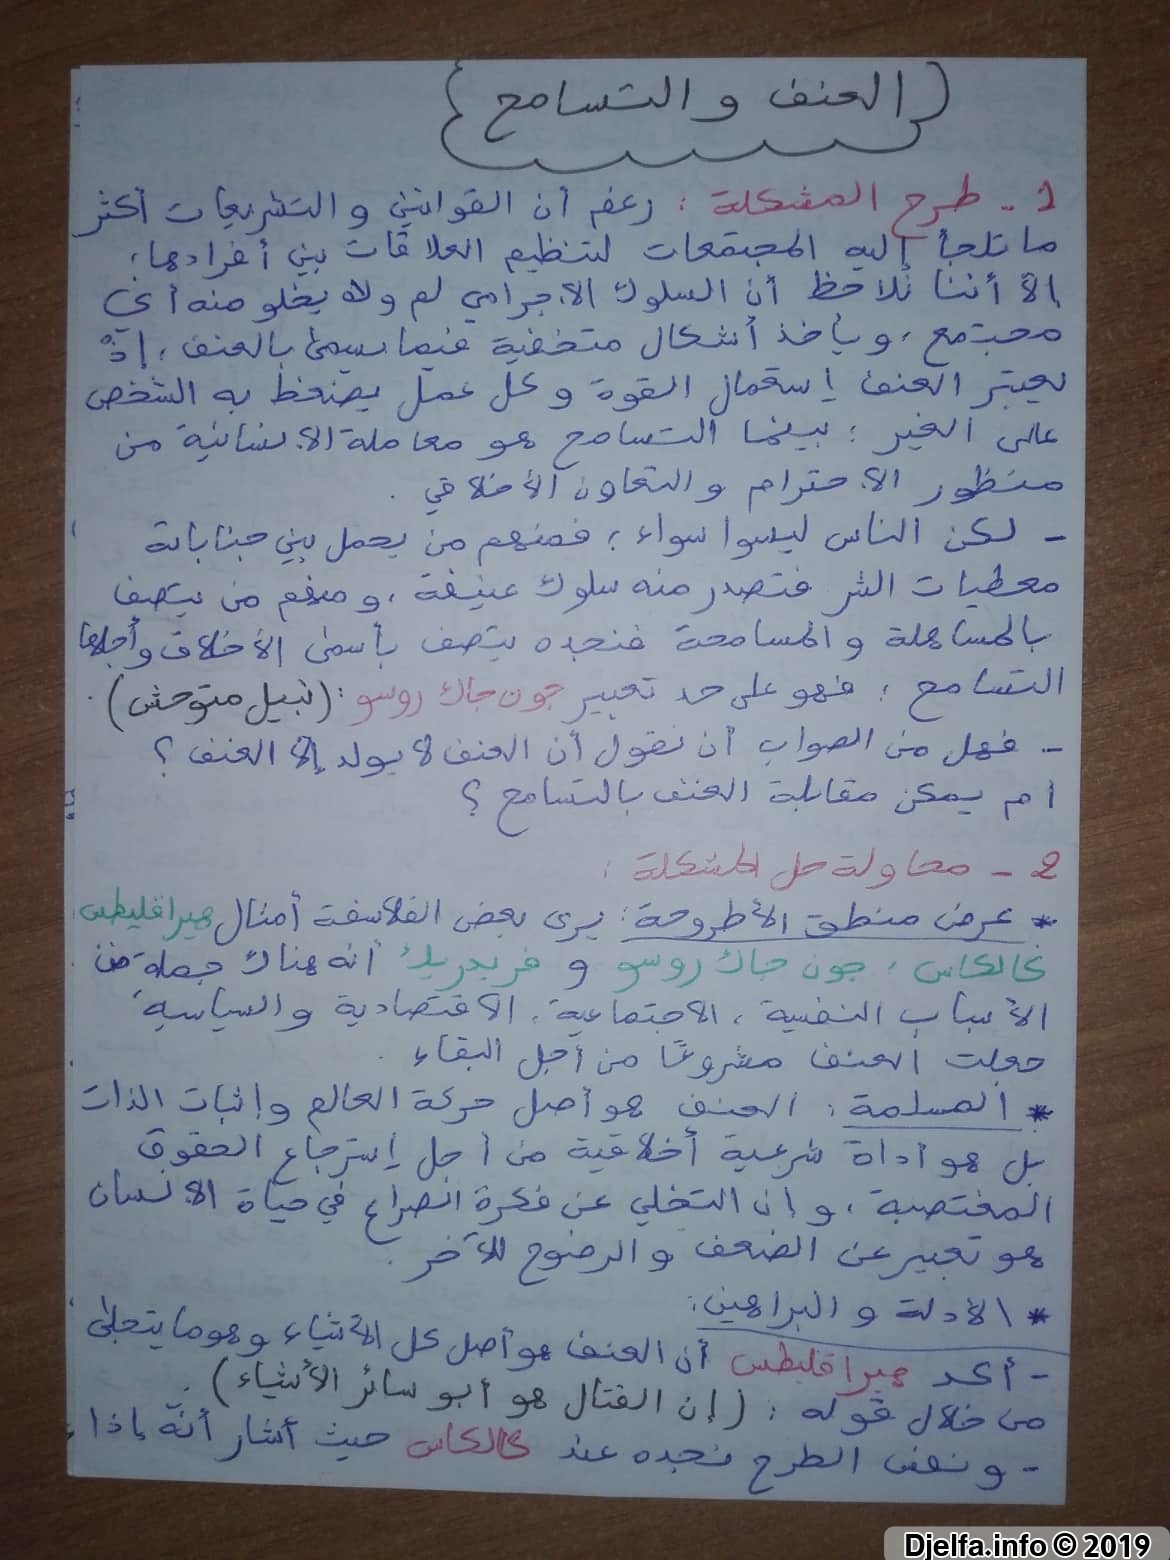 (العنف و التسامح)
1 - طرح المشكلة : رغم أن القوانين و التشريعات أكثر
ما تلجأ إليه المجتمعات لتنظيم العلاقات بين أفرادها،
إلا أننا نلاحظ أن السلوك الاجرامي لم ولا يخلو منه أي
مجتمع ، و يأخذ أشكال متخفية فيما يسمى بالعنف ، إذ
يعتبر العنف إستعمال القوة و كل عمل يضغط به الشخص
على الغير ؛ بينما التسامح هو معاملة الانسانية من
منظور الاحترام و التعاون الأخلاقي .
- لكن الناس ليسوا سواء ؛ فمنهم من يحمل بين جنباته
معطيات الشر فتصدر منه سلوك عنيفة ، و منهم من يتصف
بالمساهلة و المسامحة فنجده يتصف بأسمى الأخلاق وأجلها
التسامح ؛ فهو على حد تعبير جون جاك روسو : (نبيل متوحش) .
- فهل من الصواب أن نقول أن العنف لا يولد إلا العنف ؟
ام يمكن مقابلة العنف بالتسامح ؟
2 - محاولة حل المشكلة :
* عرض منطق الأطروحة : يرى بعض الفلاسفة أمثال هيراقليطس
كالكاس ، جون جاك روسو و فريدريك أنه هناك جملة من
الأسباب النفسية ، الاجتماعية ، الاقتصادية و السياسية
جعلت العنف مشروعًا من أجل البقاء .
* المسلمة : العنف هو أصل حركة العالم و إثبات الذات
بل هو أداة شرعية أخلاقية من أجل إسترجاع الحقوق
المغتصبة ، و إن التخلي عن فكرة الصراع في حياة الانسان
هو تعبير عن الضعف و الرضوخ للآخر .
* الادلة و البراهين :
- أكد هيراقليطس أن العنف هو أصل كل الأشياء و هو ما يتجلى
من خلال قوله : (إن القتال هو أبو سائر الأشياء) .
- و نفس الطرح نجده عند كالكاس حيث أشار أنه إذا
Djelfa.info © 2019